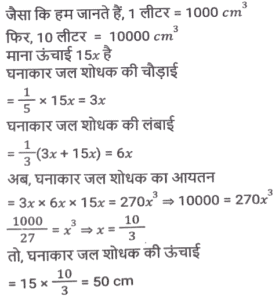 जैसा कि हम जानते हैं, 1 लीटर = 1000 cm³
फिर, 10 लीटर = 10000 cm³
माना ऊंचाई 15x है
घनाकार जल शोधक की चौड़ाई
= 1/5 × 15x = 3x
घनाकार जल शोधक की लंबाई
= 1/3 (3x + 15x) = 6x
अब, घनाकार जल शोधक का आयतन
= 3x × 6x × 15x = 270x³ ⇒ 10000 = 270x³
1000/27 = x³ ⇒ x = 10/3
तो, घनाकार जल शोधक की ऊंचाई
= 15 × 10/3 = 50 cm